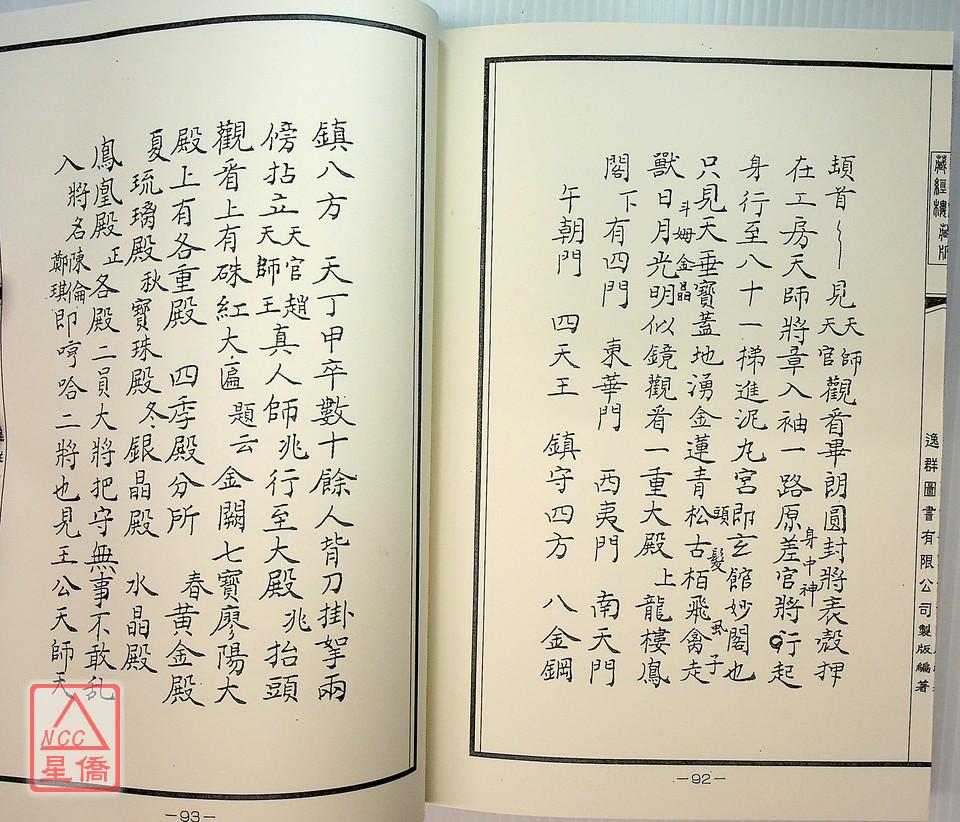 藏經樓藏版
逸群圖書有限公司製版編著
頓首〻見天師天官觀看畢朗圓封將表殼押
在工房天師將章入袖一路原差官將行起
身中神
身行至八十一梯進泥丸宮即玄館妙閣也
頭髮風子
只見天垂寶蓋地湧金蓮青松古栢飛禽走
斗姆金晶
獸日月光明似鏡觀看一重大殿上龍樓鳳
閣下有四門 東華門 西夷門 南天門
午朝門 四天王 鎮守四方 八金鋼
-92-
鎮八方 天丁甲卒數十餘人背刀掛挐兩
傍拈立天官天師趙王真人師兆行至大殿 兆抬頭
觀看上有硃紅大匾 題云金闕七寶廖陽大
殿上有各重殿 四季殿分所 春黃金殿
夏琉璃殿秋寶珠殿冬銀晶殿 水晶殿
鳳凰殿正各殿二員大將把守無事不敢乱
入將名陳倫鄭琪即哼哈二將也見王公天師天
-93-
NCC
星僑